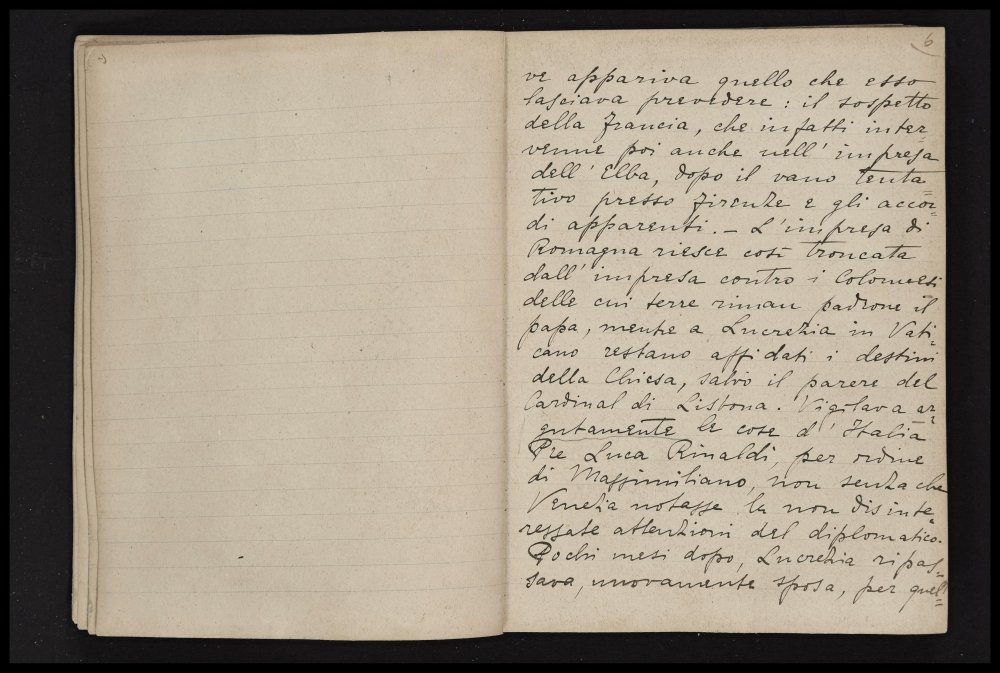 6
ve appariva quello che esso
lasciava prevedere : il sospetto
della Francia, che infatti inter=
venne poi anche nell' impresa
dell' Elba, dopo il vano tenta=
tivo presso Firenze e gli accor=
di apparenti. – L'impresa di
Romagna riesce così troncata
dall' impresa contro i Colonnesi
delle cui terre riman padrone il
papa, mentre a Lucrezia in Vati=
cano restano affidati i destini
della Chiesa, salvo il parere del
Cardinal di Lisbona. Vigilava ar=
gutamente le cose d' Italia
Pre Luca Rinaldi, per ordine
di Massimiliano, non senza che
Venezia notasse le non disinte=
ressate attenzioni del diplomatico.
Pochi mesi dopo, Lucrezia ripas=
sava, nuovamente sposa, per quel=